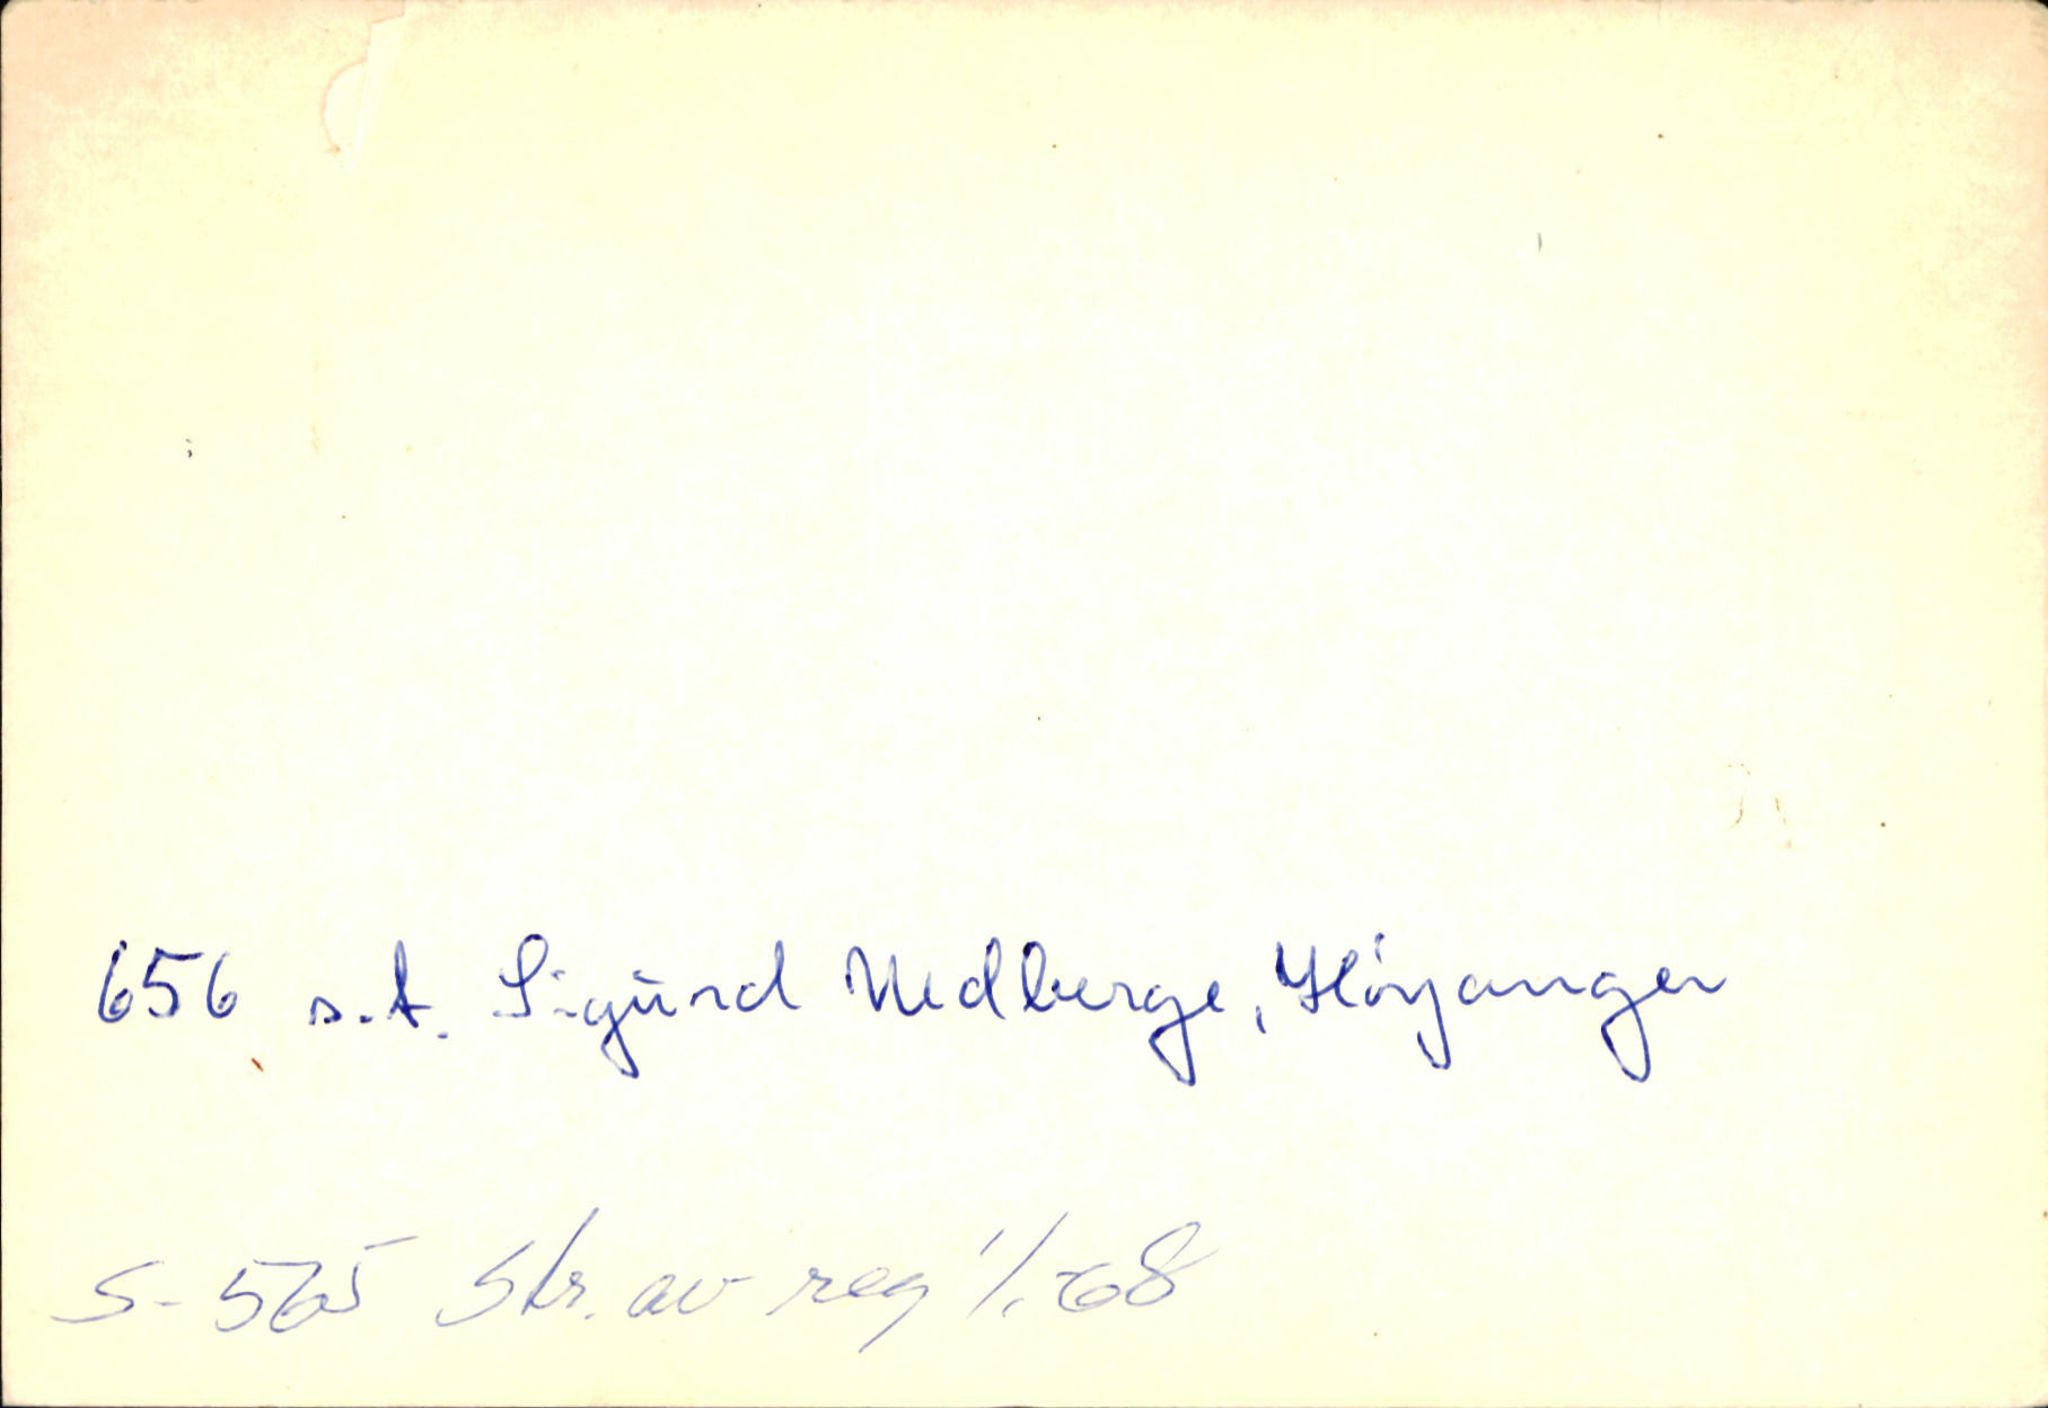 656 s.t. Sigurd Nedberge, Höyanger
S-565 Str. av reg 1/1.68